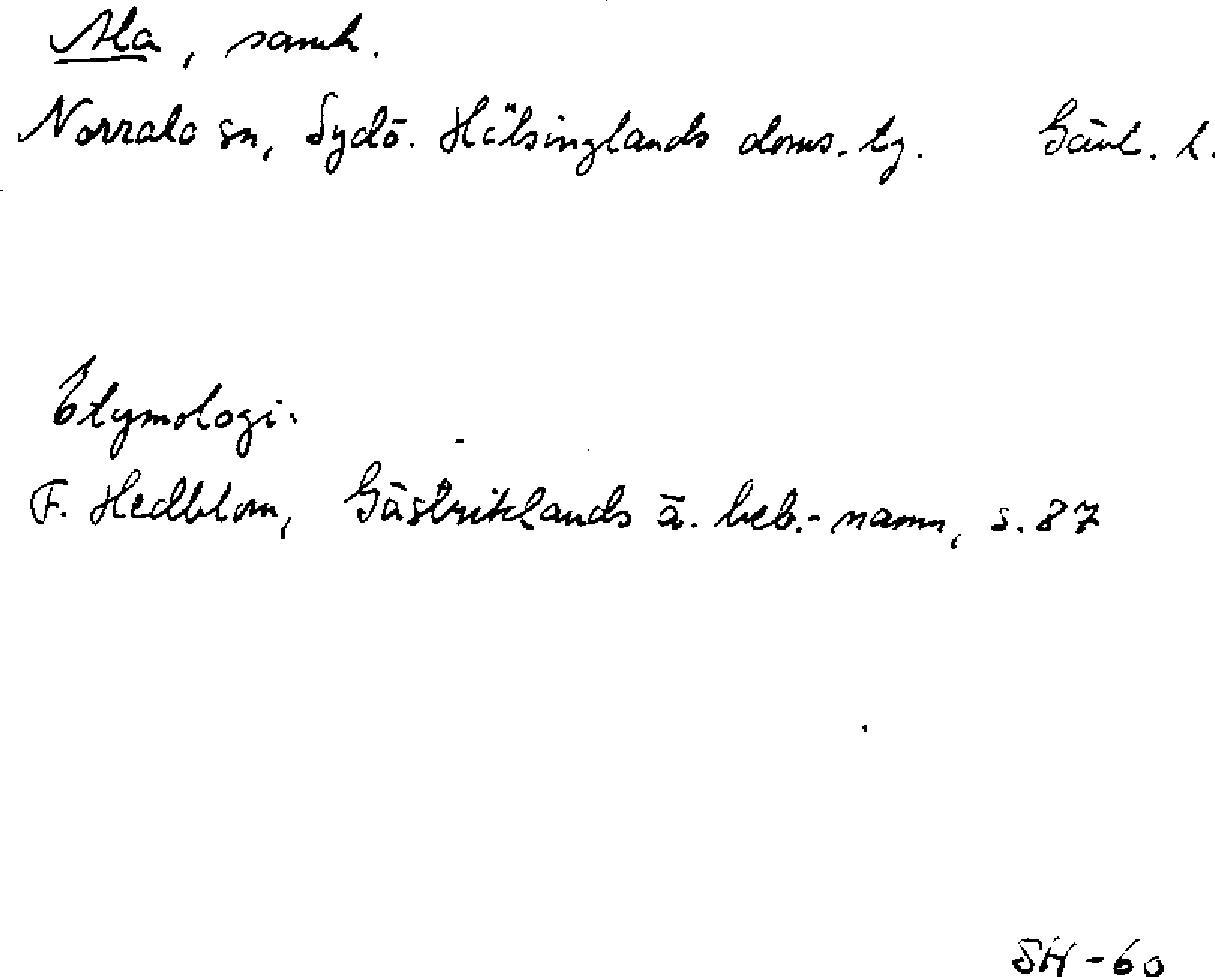 Ala, samh.
Norrala sn, Sydö. Hälsinglands doms. tg. Gävl. l.
Etymologi.
F. Hedblom, Gästriklands ä. beb.-namn, s. 87
SH-60